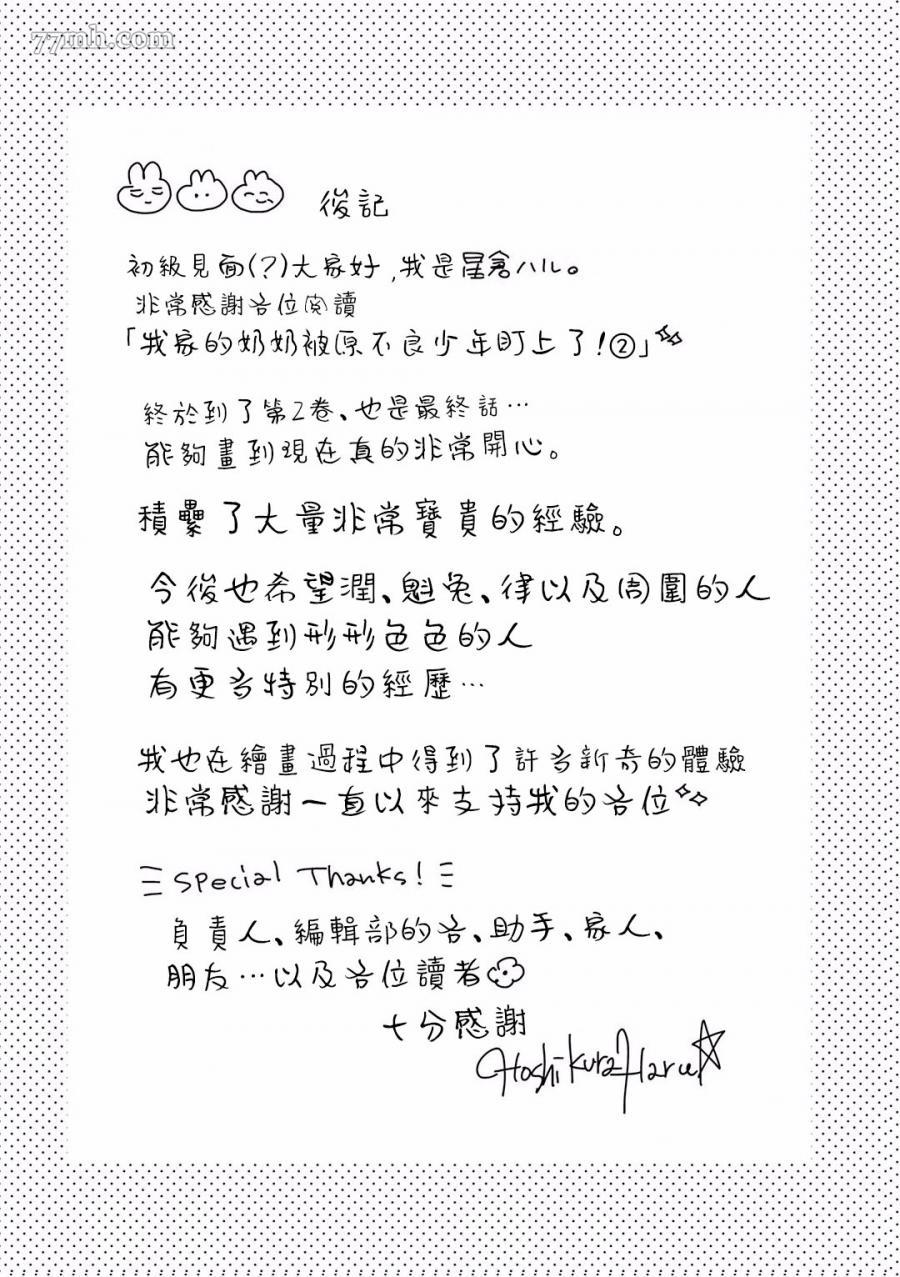 77mh.com
後記
初級見面(?)大家好,我是星倉ハル。
非常感謝各位閱讀
「我家的奶奶被原不良少年盯上了!②」
終於到了第2卷、也是最終話…
能夠畫到現在真的非常開心。
積纍了大量非常寶貴的經驗。
今後也希望潤、魁兔、律以及周圍的人
能夠遇到形形色色的人
有更多特別的經歷…
我也在繪畫過程中得到了許多新奇的體驗
非常感謝一直以來支持我的各位
Special Thanks!
負責人、編輯部的各、助手、家人、
朋友…以及各位讀者
十分感謝
Hoshikura Haru